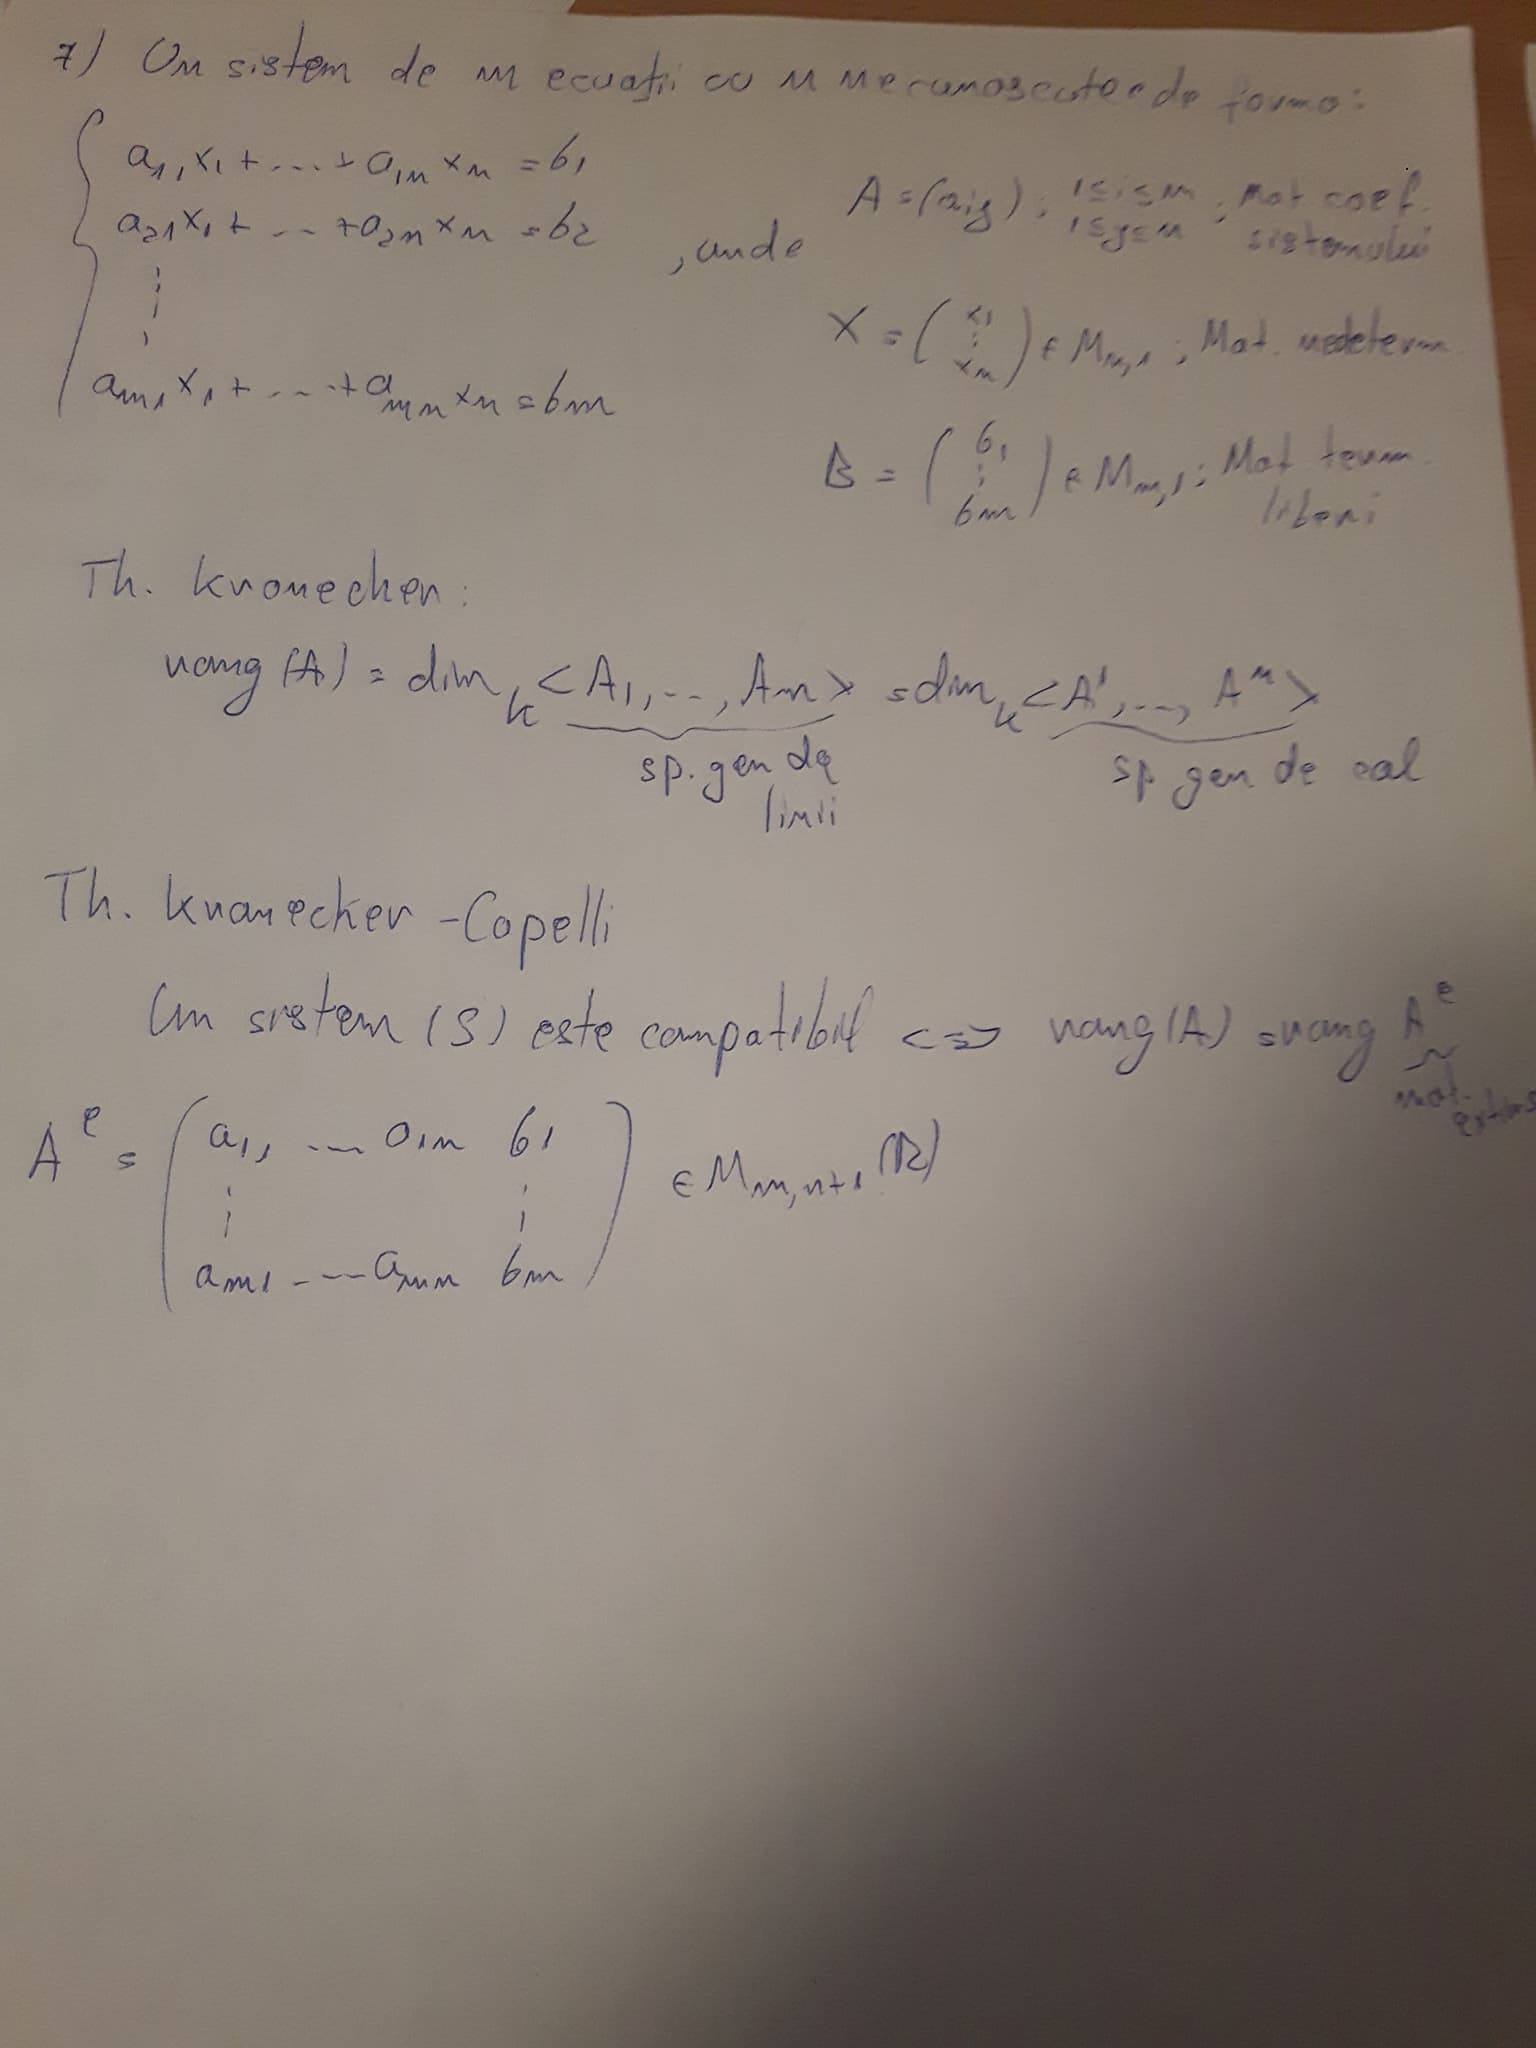 7) Un sistem de m ecuații cu n necunoscute e de forma:
{ a₁₁x₁ + ... + a₁ₙxₙ = b₁
a₂₁x₁ + ... + a₂ₙxₙ = b₂
⋮
aₘ₁x₁ + ... + aₘₙxₙ = bₘ
, unde
A = (aij); 1≤i≤m 1≤j≤n ; Mat coef.
sistemului
X = (x₁ ⋮ xₙ) ∈ Mₙ,₁ ; Mat. nedeterm
B = (b₁ ⋮ bₘ) ∈ Mₘ,₁ ; Mat term.
liberi
Th. Kronecker:
rang (A) = dim_K <A₁, ..., Aₘ> = dim_K <A¹, ..., Aⁿ>
sp. gen de sp gen de col
linii
Th. Kronecker - Copelli
Un sistem (S) este compatibil <=> rang (A) = rang Aᵉ
mat.
extins
Aᵉ = ( a₁₁ ... a₁ₙ b₁
⋮ ⋮
aₘ₁ ... aₘₙ bₘ ) ∈ Mₘ,ₙ₊₁ (R)